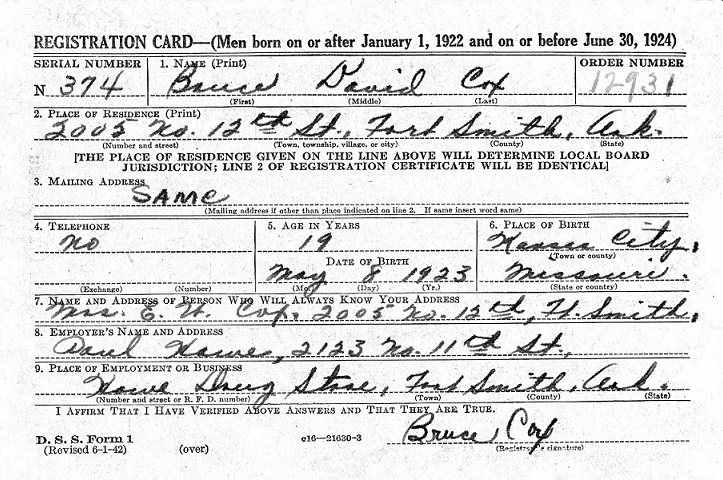 REGISTRATION CARD—(Men born on or after January 1, 1922 and on or before June 30, 1924)
SERIAL NUMBER 1. NAME (Print) ORDER NUMBER
N 374 Bruce David Cox 12931
(First) (Middle) (Last)
2. PLACE OF RESIDENCE (Print)
2005 No. 12th St., Fort Smith, Ark.
(Number and street) (Town, township, village, or city) (County) (State)
[THE PLACE OF RESIDENCE GIVEN ON THE LINE ABOVE WILL DETERMINE LOCAL BOARD
JURISDICTION; LINE 2 OF REGISTRATION CERTIFICATE WILL BE IDENTICAL]
3. MAILING ADDRESS
SAME
(Mailing address if other than place indicated on line 2. If same insert word same)
4. TELEPHONE 5. AGE IN YEARS 6. PLACE OF BIRTH
No 19 Kansas City,
(Town or county)
DATE OF BIRTH
May 8 1923 Missouri.
(Exchange) (Number) (Mo.) (Day) (Yr.) (State or country)
7. NAME AND ADDRESS OF PERSON WHO WILL ALWAYS KNOW YOUR ADDRESS
Mrs. E. H. Cox, 2005 No. 12th, Ft. Smith,
8. EMPLOYER'S NAME AND ADDRESS
Paul Howe, 2123 No. 11th St,
9. PLACE OF EMPLOYMENT OR BUSINESS
Howe Drug Store, Fort Smith, Ark.
(Number and street or R. F. D. number) (Town) (County) (State)
I AFFIRM THAT I HAVE VERIFIED ABOVE ANSWERS AND THAT THEY ARE TRUE.
Bruce Cox
D. S. S. Form 1
(Revised 6-1-42) (over) c16—21630-3 (Registrant's signature)